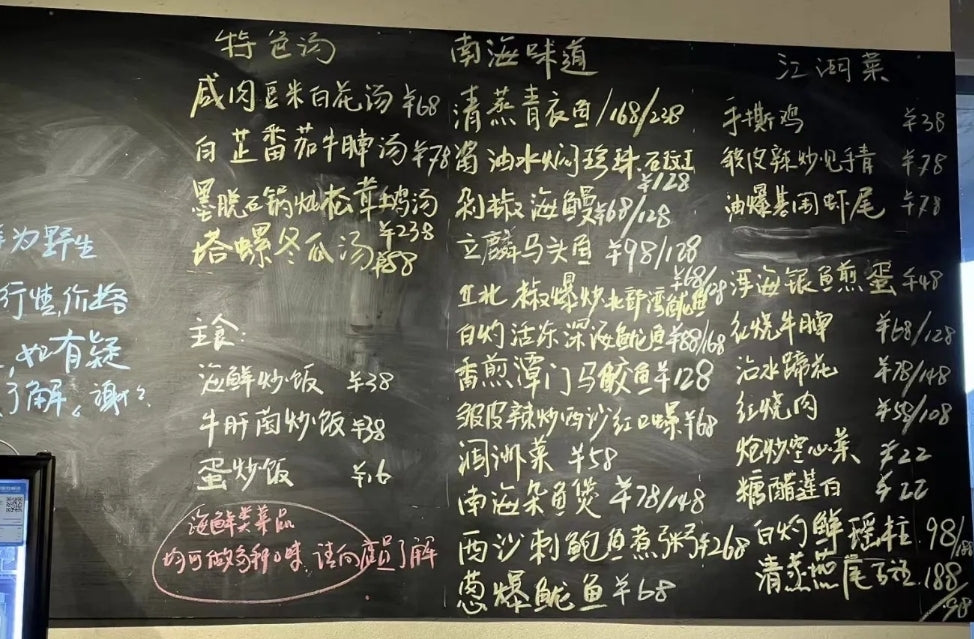 特色汤
咸肉豆米白花汤 ¥68
白芷番茄牛腩汤 ¥78
墨脱石锅炖松茸鸡汤
¥238
塔螺冬瓜汤 ¥88
为野生
行情价格
如有疑
了解。谢谢
主食:
海鲜炒饭 ¥38
牛肝菌炒饭 ¥38
蛋炒饭 ¥16
海鲜类菜品
均可做多种口味,请向店员了解
南海味道
清蒸青衣鱼/168/238
酱油水焖珍珠石斑
¥128
剁椒海鳗 ¥68/128
立麟马头鱼 ¥98/128
¥68/108
豆北椒爆炒北部湾鱿鱼
白灼活冻深海鱿鱼 ¥88/168
香煎潭门马鲛鱼 ¥128
皱皮辣炒西沙红口螺 ¥68
涠洲菜 ¥58
南海杂鱼煲 ¥78/148
西沙刺鲍鱼煮粥 ¥268
葱爆鱿鱼 ¥68
江湖菜
手撕鸡 ¥38
皱皮辣炒见手青 ¥78
油爆基围虾尾 ¥78
浮海银鱼煎蛋 ¥48
红烧牛腩 ¥68/128
沾水蹄花 ¥78/148
红烧肉 ¥58/108
炝炒空心菜 ¥22
糖醋莲白 ¥22
白灼鲜瑶柱 98/188
清蒸燕尾 188
/98